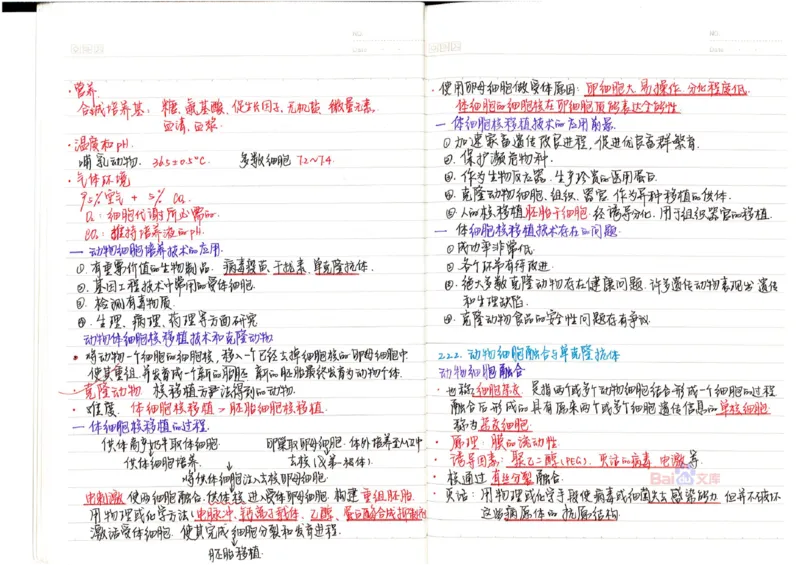 NO.
DATE
·营养
合成培养基：糖、氨基酸、促生长因子、无机盐、微量元素、
血清、血浆
·温度和pH
哺乳动物 36.5±0.5℃ 多数细胞 7.2~7.4
·气体环境
95%空气 + 5% CO₂
O₂：细胞代谢所必需的
CO₂：维持培养液的pH
一 动物细胞培养技术的应用
①. 有重要价值的生物制品 病毒疫苗、干扰素、单克隆抗体
②. 基因工程技术中常用的受体细胞
③. 检测有毒物质
④. 生理、病理、药理等方面研究
动物体细胞核移植技术和克隆动物
·将动物一个细胞的细胞核，移入一个已经去掉细胞核的卵母细胞中
使其重组，并发育成一个新的胚胎 新的胚胎最终发育为动物个体
·克隆动物 核移植方法得到的动物
·难度 体细胞核移植 > 胚胎细胞核移植
一 体细胞核移植的过程
供体高产奶牛取体细胞 卵巢取卵母细胞 体外培养至MⅡ中
供体细胞培养 去核(及第一极体)
将供体细胞注入去核卵母细胞
电刺激使两细胞融合 供体核进入受体卵母细胞 构建重组胚胎
用物理或化学方法(电脉冲、钙离子载体、乙醇、蛋白酶合成抑制剂)
激活受体细胞 使其完成细胞分裂和发育进程
胚胎移植
NO.
DATE
·使用卵母细胞做受体原因：卵细胞大 易操作 分化程度低
体细胞的细胞核在卵细胞质能表达全能性
一 体细胞核移植技术的应用前景
①加速家畜遗传改良进程，促进优良畜群繁育
②.保护濒危物种
③.作为生物反应器 生产珍贵的医用蛋白
④.克隆动物细胞、组织、器官 作为异种移植的供体
⑤人的核移植胚胎干细胞 经诱导分化 用于组织器官的移植
一 体细胞核移植技术存在的问题
①成功率非常低
②.各个环节有待改进
③.绝大多数克隆动物存在健康问题 许多遗传动物表现出遗传
和生理缺陷
④.克隆动物食品的安全性问题存有争议
2.2.2. 动物细胞融合与单克隆抗体
动物细胞融合
·也称细胞杂交 是指两个或多个动物细胞结合形成一个细胞的过程
融合后形成的具有原来两个或多个细胞遗传信息的单核细胞
称为杂交细胞
·原理：膜的流动性
·诱导因素：聚乙二醇(PEG)、灭活的病毒、电激等
·核通过有丝分裂融合
·灭活：用物理或化学手段使病毒或细菌失去感染能力 但并不破坏
这些病原体的抗原结构
Bai文库